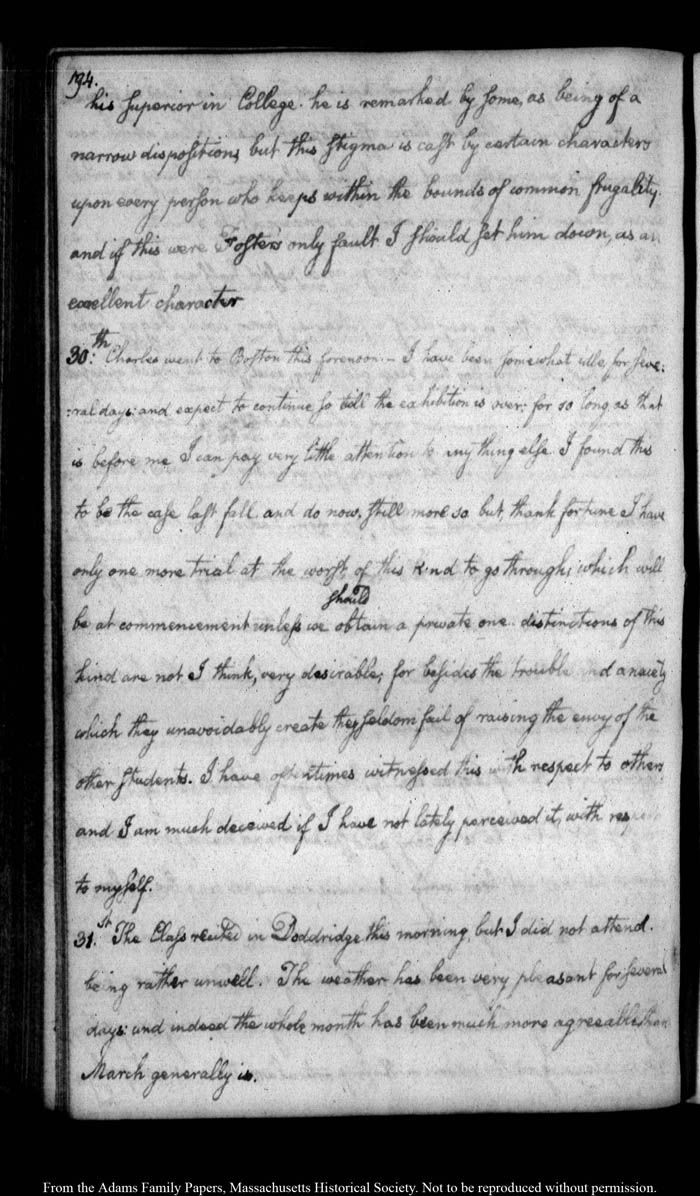 194.
his superior in College. he is remarked by some, as being of a
narrow dispositions, but this stigma is cast by certain characters
upon every person who keeps within the bounds of common frugality.
and if this were Foster's only fault I should set him down, as an
excellent character
30.th Charles went to Boston this forenoon.— I have been somewhat idle, for seve:
:ral days: and expect to continue so till the exhibition is over: for so long as that
is before me I can pay very little attention to any thing else. I found this
to be the case last fall and do now, still more so but, thank fortune I have
only one more trial at the worst, of this kind to go through; which will
should
be at commencement unless we obtain a private one. distinctions of this
kind are not I think, very desirable; for besides the trouble and anxiety
which they unavoidably create they seldom fail of raising the envy of the
other students. I have oftentimes witnessed this with respect to others
and I am much deceived if I have not lately perceived it, with respect
to myself.
31.st The Class recited in Doddridge this morning, but I did not attend.
being rather unwell. The weather has been very pleasant for several
days: and indeed the whole month has been much more agreeable than
March generally is.
From the Adams Family Papers, Massachusetts Historical Society. Not to be reproduced without permission.